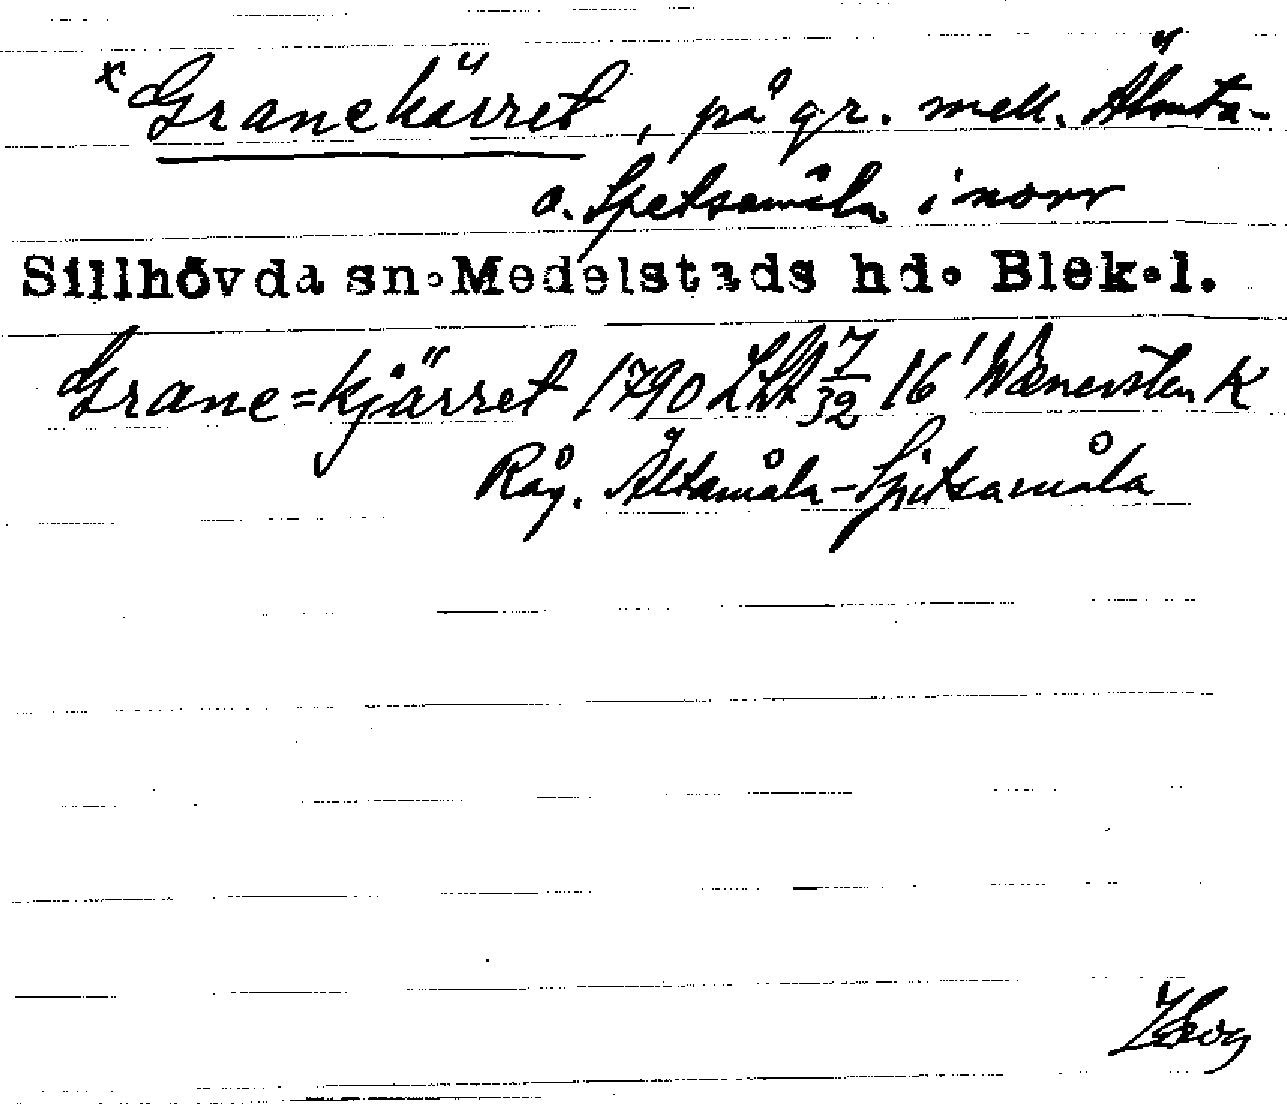 x Granekärret, på gr. mell. Älmta-
o. Spetsamåla i norr
Sillhövda sn. Medelstads hd. Blek. l.
Grane=kjärret 1790 LSA 7/32 16' K
Råg. Ältamåla-Spitsamåla